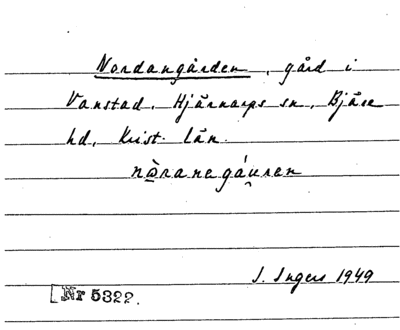 Nordangården, gård i
Vanstad, Hjärnarps sn, Bjäre
hd, Krist. län.
nò̱ranegáu̯ren
I. Ingers 1949
Nr 5322.